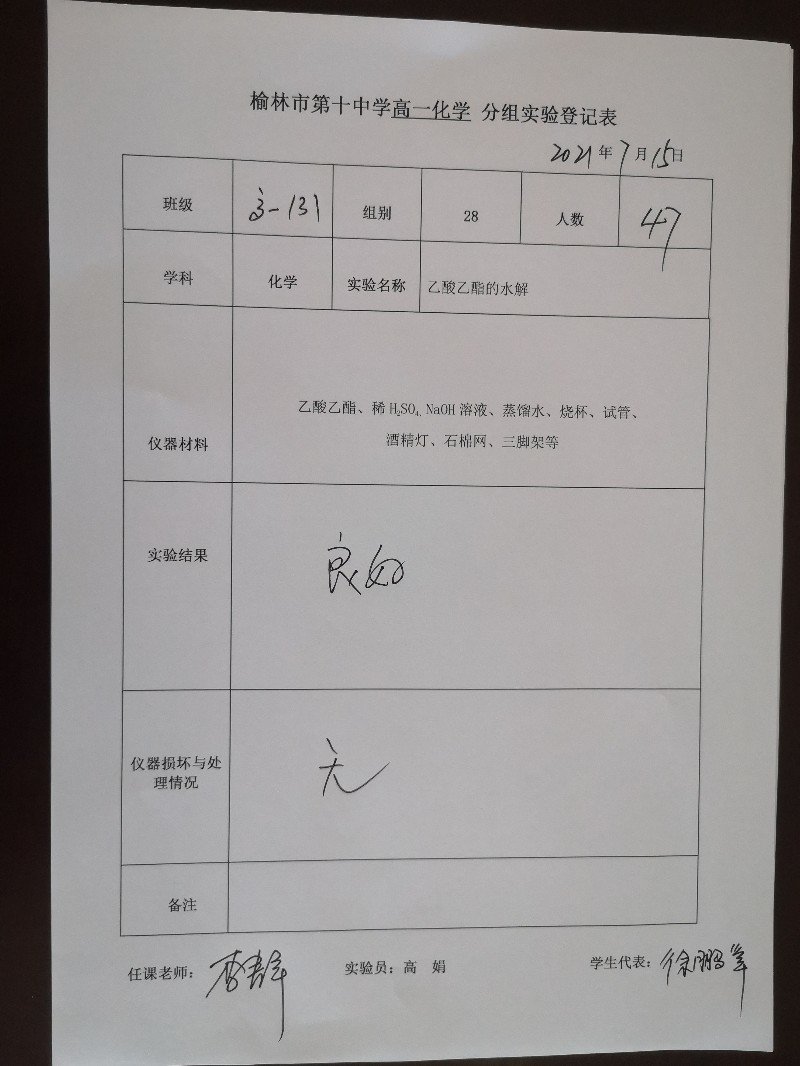 榆林市第十中学高一化学 分组实验登记表
2021年7月15日
班级 高一131 组别 28 人数 47
学科 化学 实验名称 乙酸乙酯的水解
仪器材料 乙酸乙酯、稀H₂SO₄、NaOH溶液、蒸馏水、烧杯、试管、
酒精灯、石棉网、三脚架等
实验结果 良好
仪器损坏与处
理情况 无
备注
任课老师: 实验员:高 娟 学生代表:徐鹏